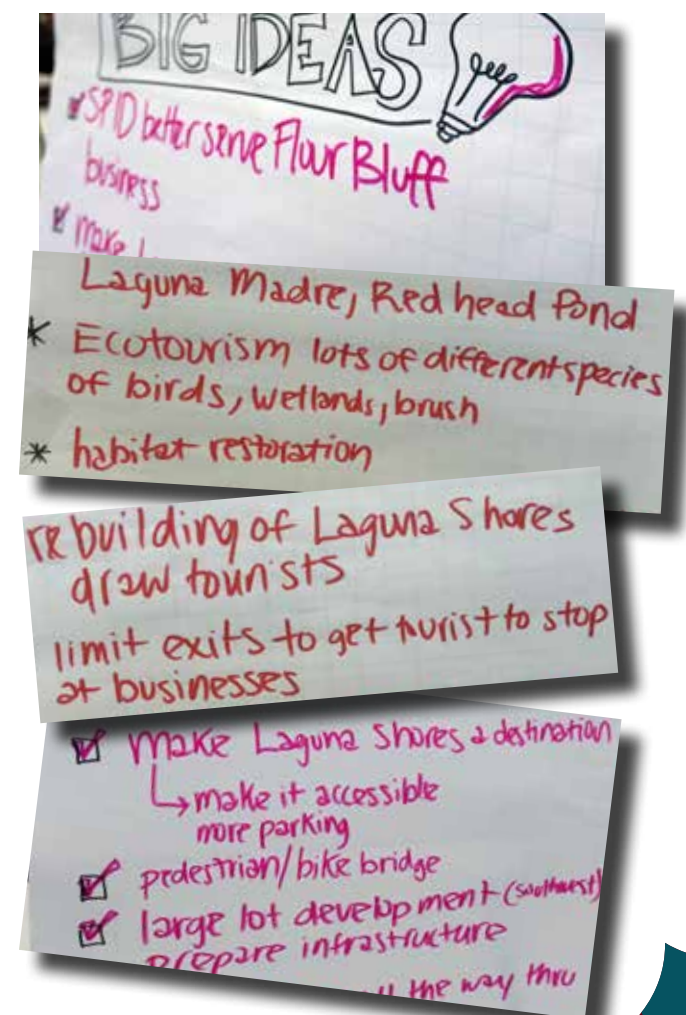 BIG IDEAS
SPID better serve Flour Bluff
business
make
Laguna Madre, Red head Pond
Ecotourism lots of different species
of birds, wetlands, brush
habitat restoration
rebuilding of Laguna Shores
draw tourists
limit exits to get turist to stop
at businesses
make Laguna Shores a destination
make it accessible
more parking
pedestrian/bike bridge
large lot development (southwest)
prepare infrastructure
the way thru